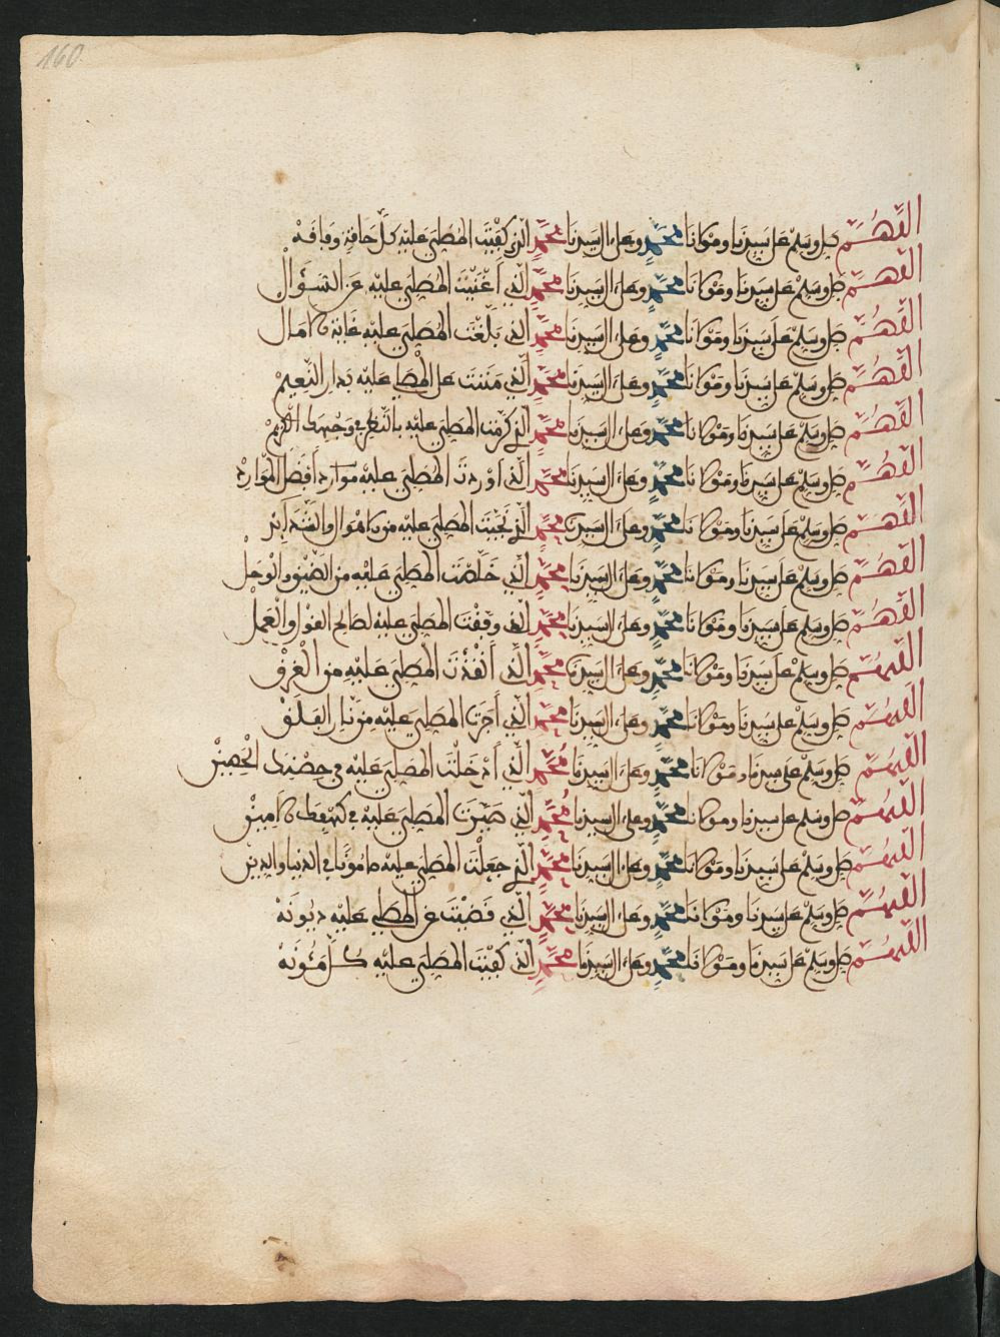 160
اللهم صل وسلم على سيدنا ومولانا محمد وعلى ال سيدنا محمد الذي كفيت المصلي عليه كل حاجة وفاقه
اللهم صل وسلم على سيدنا ومولانا محمد وعلى ال سيدنا محمد الذي أغنيت المصلي عليه عن السؤال
اللهم صل وسلم على سيدنا ومولانا محمد وعلى ال سيدنا محمد الذي بلغت المصلي عليه غاية الامال
اللهم صل وسلم على سيدنا ومولانا محمد وعلى ال سيدنا محمد الذي مننت على المصلي عليه بدار النعيم
اللهم صل وسلم على سيدنا ومولانا محمد وعلى ال سيدنا محمد الذي كرمت المصلي عليه بالنظر في وجهك الكريم
اللهم صل وسلم على سيدنا ومولانا محمد وعلى ال سيدنا محمد الذي أوردت المصلي عليه موارد أفضل الموارد
اللهم صل وسلم على سيدنا ومولانا محمد وعلى ال سيدنا محمد الذي نجيت المصلي عليه من الاهوال والشدائد
اللهم صل وسلم على سيدنا ومولانا محمد وعلى ال سيدنا محمد الذي خلصت المصلي عليه من الضيق والوحل
اللهم صل وسلم على سيدنا ومولانا محمد وعلى ال سيدنا محمد الذي وفقت المصلي عليه لصالح القول والعمل
اللهم صل وسلم على سيدنا ومولانا محمد وعلى ال سيدنا محمد الذي أنقذت المصلي عليه من الغرق
اللهم صل وسلم على سيدنا ومولانا محمد وعلى ال سيدنا محمد الذي أجرت المصلي عليه من نيل الفلق
اللهم صل وسلم على سيدنا ومولانا محمد وعلى ال سيدنا محمد الذي أدخلت المصلي عليه في حصنك الحصين
اللهم صل وسلم على سيدنا ومولانا محمد وعلى ال سيدنا محمد الذي صيرت المصلي عليه في كهفك الامين
اللهم صل وسلم على سيدنا ومولانا محمد وعلى ال سيدنا محمد الذي جعلت المصلي عليه مامونا في الدنيا والدين
اللهم صل وسلم على سيدنا ومولانا محمد وعلى ال سيدنا محمد الذي قضيت عن المصلي عليه ديونه
اللهم صل وسلم على سيدنا ومولانا محمد وعلى ال سيدنا محمد الذي كفيت المصلي عليه كل مئونه